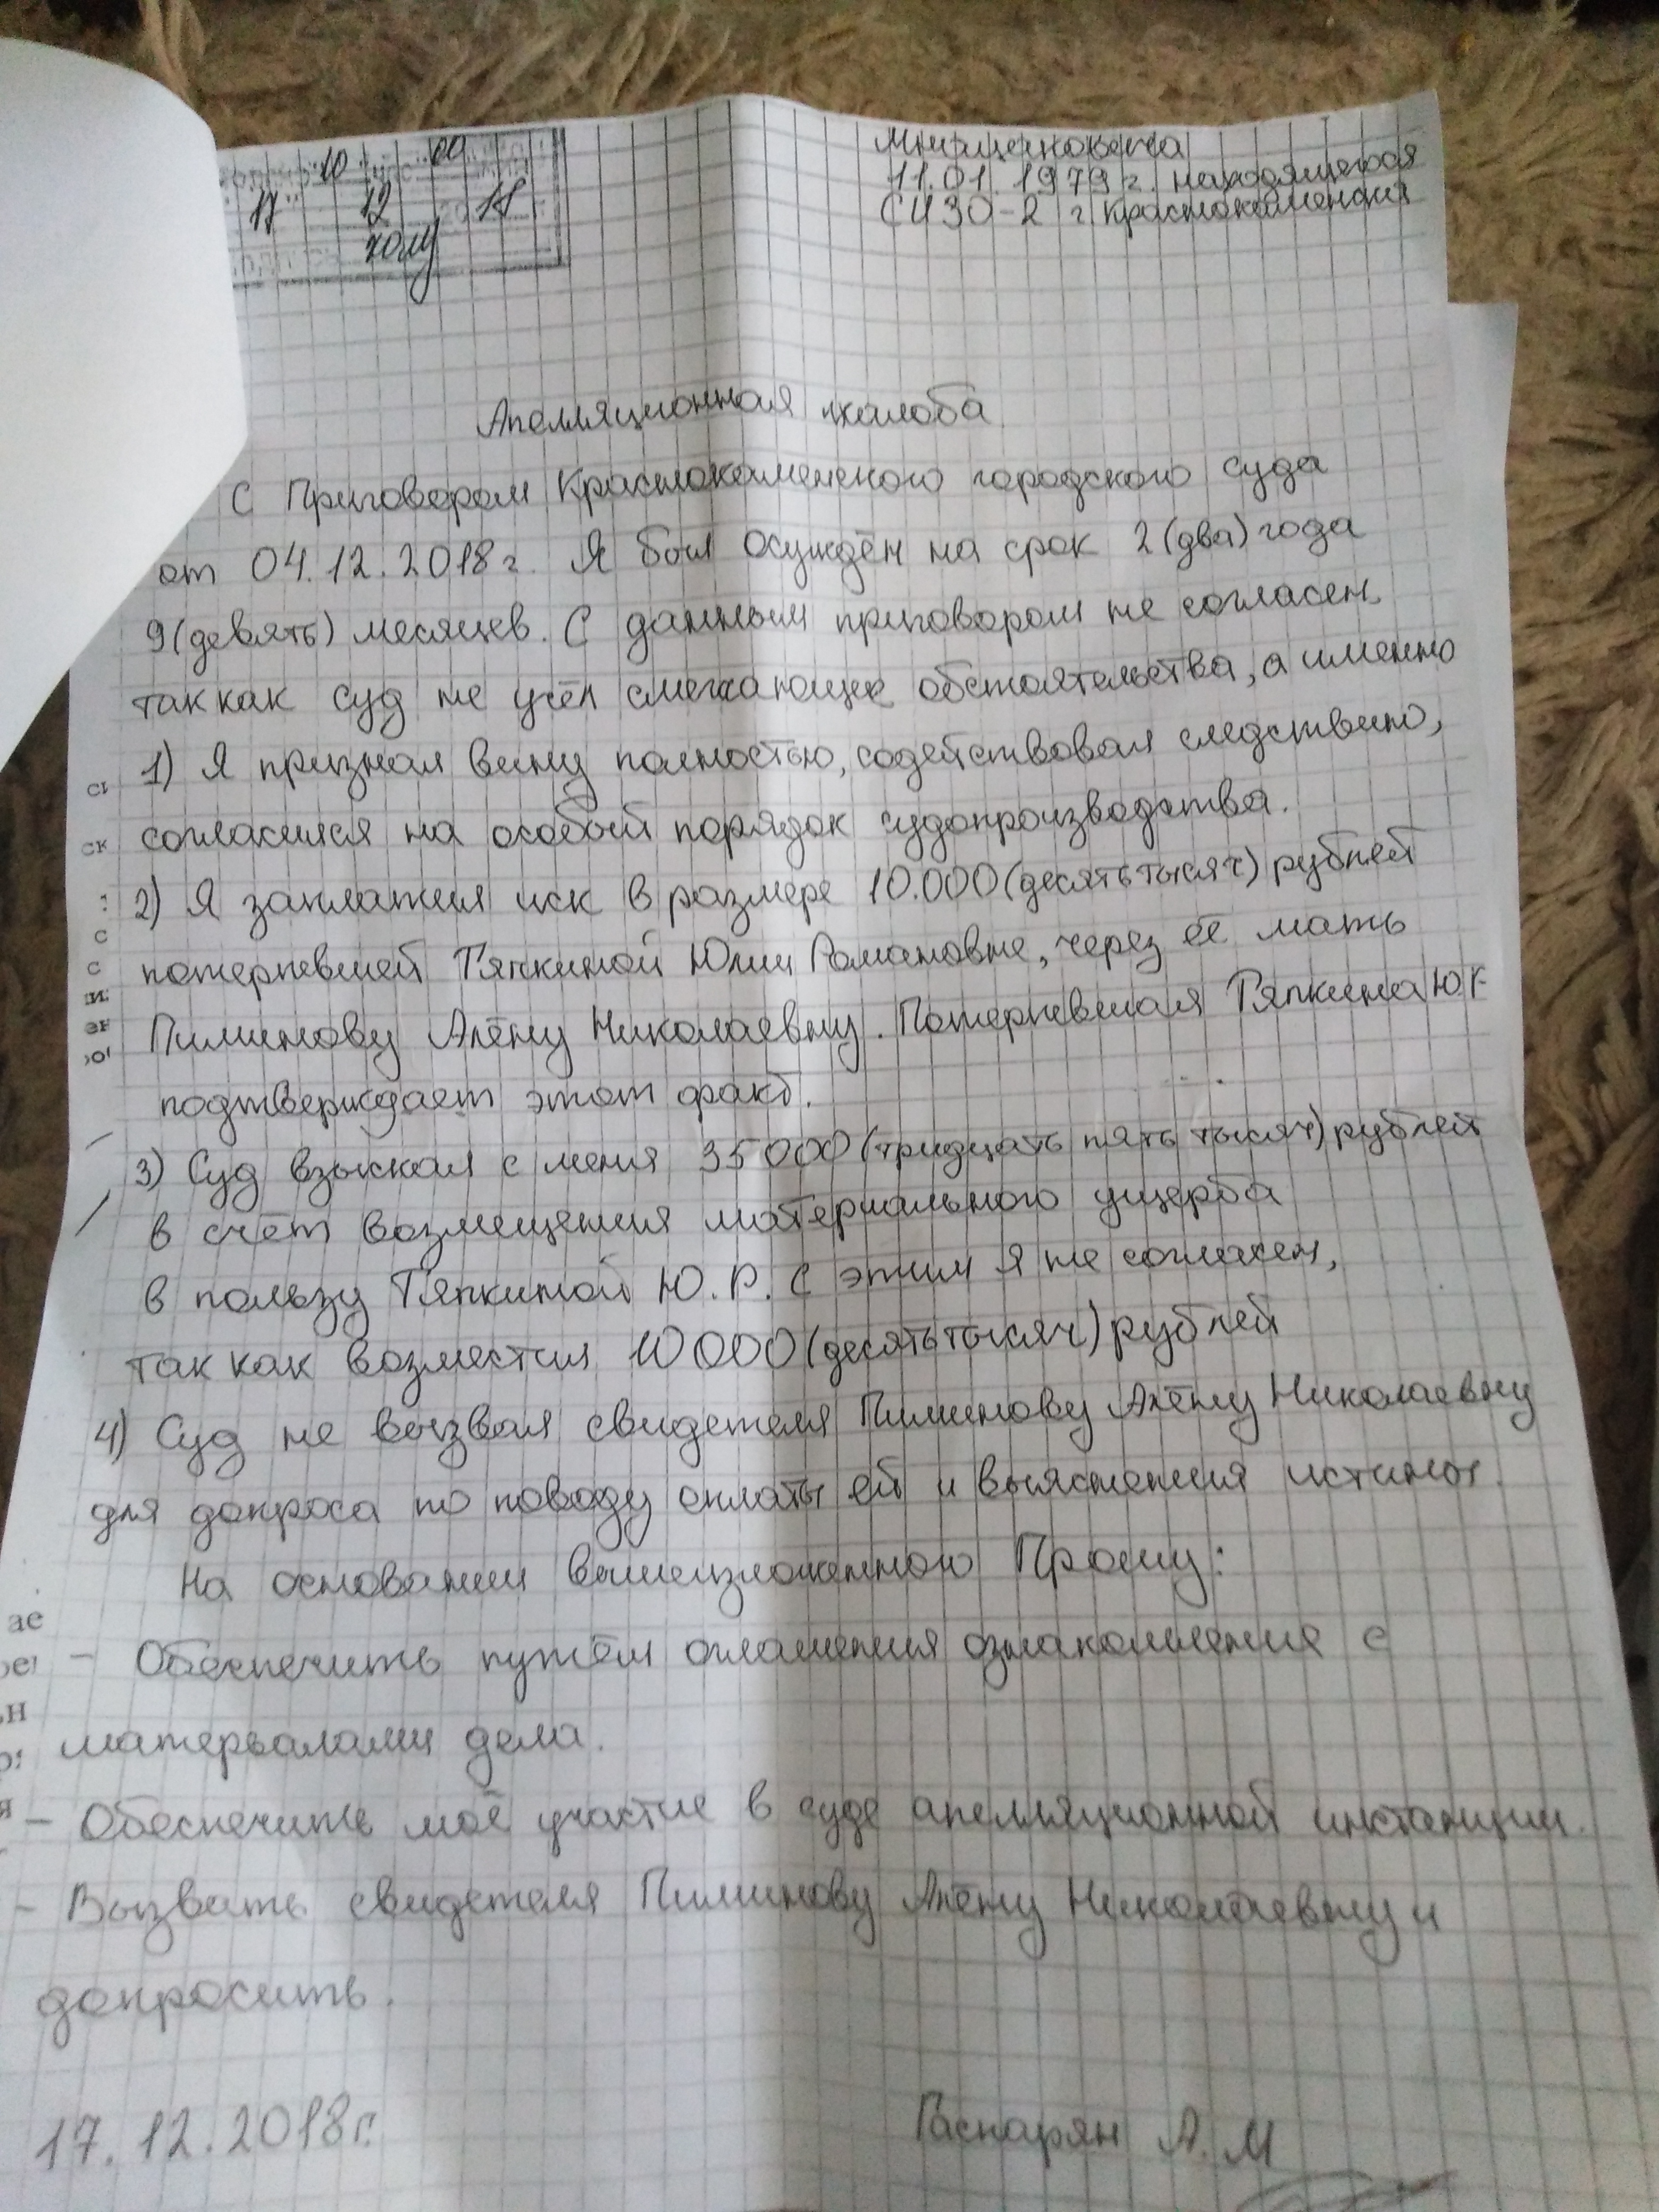 10 09
17 12 18
Мнацакановича
11.01.1979 г. находящегося
СИЗО-2 г Краснокаменска
Апелляционная жалоба
С Приговором Краснокаменского городского суда
от 04.12.2018г. Я был осуждён на срок 2(два) года
9(девять) месяцев. С данным приговором не согласен,
так как суд не учёл смягчающие обстоятельства, а именно
1) Я признал вину полностью, содействовал следствию,
сн
согласился на особый порядок судопроизводства.
ск
2) Я заплатил иск в размере 10.000(десять тысяч) рублей
с
потерпевшей Тяпкиной Юлии Романовне, через её мать
с
Пилинову Алёну Николаевну. Потерпевшая Тяпкина Ю Р
подтверждает этот факт.
3) Суд взыскал с меня 35000(тридцать пять тысяч) рублей
в счёт возмещения материального ущерба
в пользу Тяпкиной Ю.Р. С этим я не согласен,
так как возместил 10000(десять тысяч) рублей
4) Суд не вызвал свидетеля Пилинову Алёну Николаевну
для допроса по поводу оплаты ей и выяснения истины.
На основании вышеизложенного Прошу:
ае
- Обеспечить путём оглашения ознакомление с
матерьалами дела.
- Обеспечить моё участие в суде апелляционной инстанции.
- Вызвать свидетеля Пилинову Алёну Николаевну и
допросить.
17.12.2018г.
Гаспарян А.М